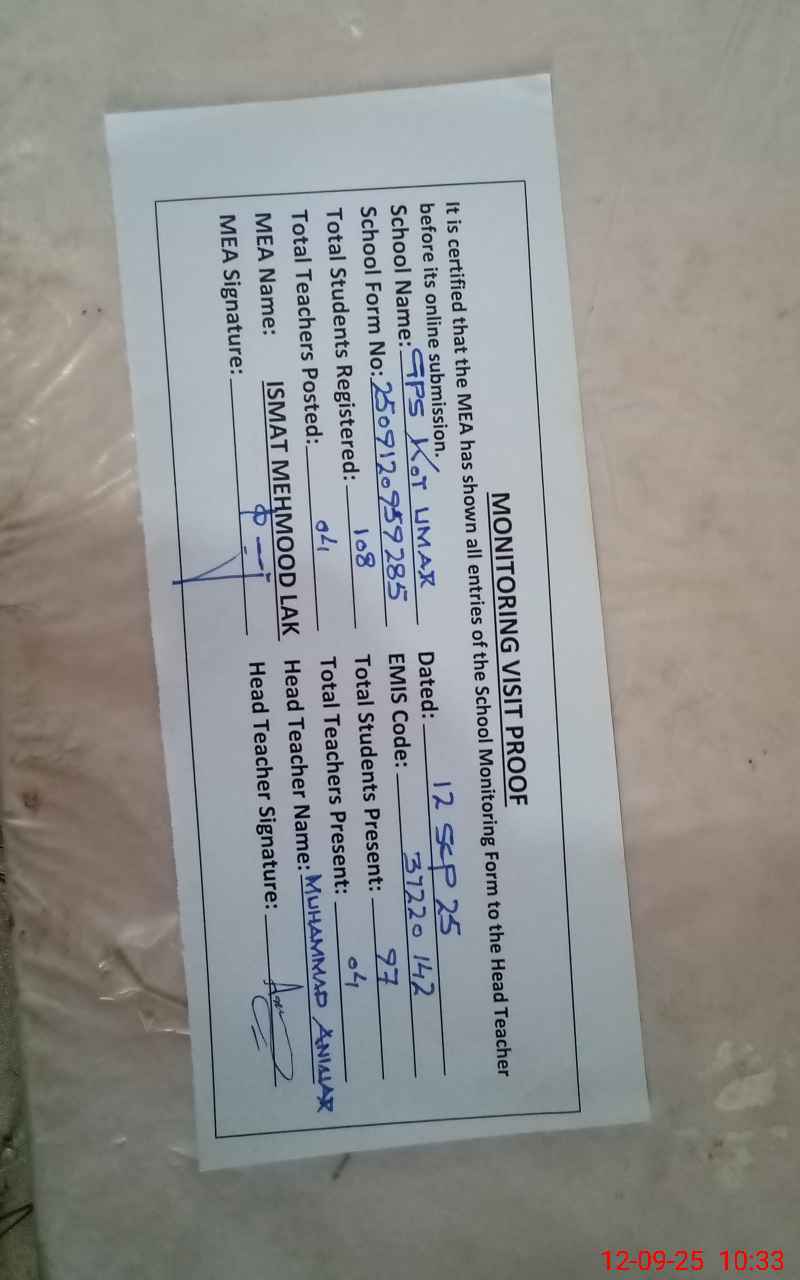 MONITORING VISIT PROOF
It is certified that the MEA has shown all entries of the School Monitoring Form to the Head Teacher
before its online submission.
School Name: GPS KOT UMAR Dated: 12 SEP 25
School Form No: 2509120959285 EMIS Code: 37220142
Total Students Registered: 108 Total Students Present: 97
Total Teachers Posted: 04 Total Teachers Present: 04
MEA Name: ISMAT MEHMOOD LAK Head Teacher Name: MUHAMMAD ANWAR
MEA Signature: Head Teacher Signature:
12-09-25 10:33